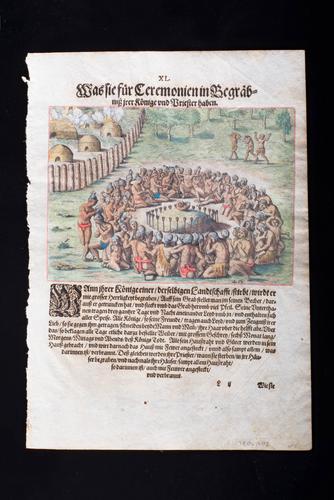 XL.
Was sie für Ceremonien in Begräb-
niß jrer Könige vnd Priester haben.
WAnn jhrer Könige einer / derselbigen Landtschafft / stirbt / wirdt er
mit grosser Herrligkeyt begraben / Auff sein Grab stellet man im seinen Becher / dar-
auß er getruncken hat / vnd steckt vmb das Grab herumb viel Pfeil. Seine Vntertha-
nen tragen drey gantzer Tag vnd Nacht aneinander Leyd vmb jn / vnd enthalten sich
aller Speise. Alle Könige / so seine Freunde / tragen auch Leyd / vnd zum Zeugnuß der
Lieb / so sie gegen jhm getragen / schneiden beyde Mann vnd Weib / jhr Haar vber die helfft abe. Vnd
Morgen / Mittags vnd Abends deß Königs Todt. Alle sein Haußraht vnd Güter werden in sein
Hauß gebracht / vnd wirt darnach das Hauß mit Feuwer angesteckt / vnnd also sampt allem / was
darinnen ist / verbrannt. Deß gleichen werden jhre Priester / wann sie sterben / in jhr Häu-
ser begraben / vnd nachmals jhre Häuser sampt allem Haußraht /
so darinnen ist / auch mit Feuwer angesteckt /
vnd verbrannt.
Wieste